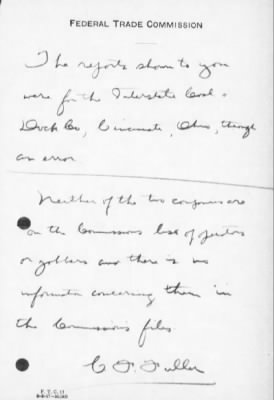 FEDERAL TRADE COMMISSION
The reports shown to you
were for the Interstate Coal &
Dock Co, Cincinnati, Ohio, through
an error
Neither of the two companies are
on the Commissions list of jobbers
or and there is no
information concerning them in
the Commissions files.
C F Fuller
F. T. C. 11